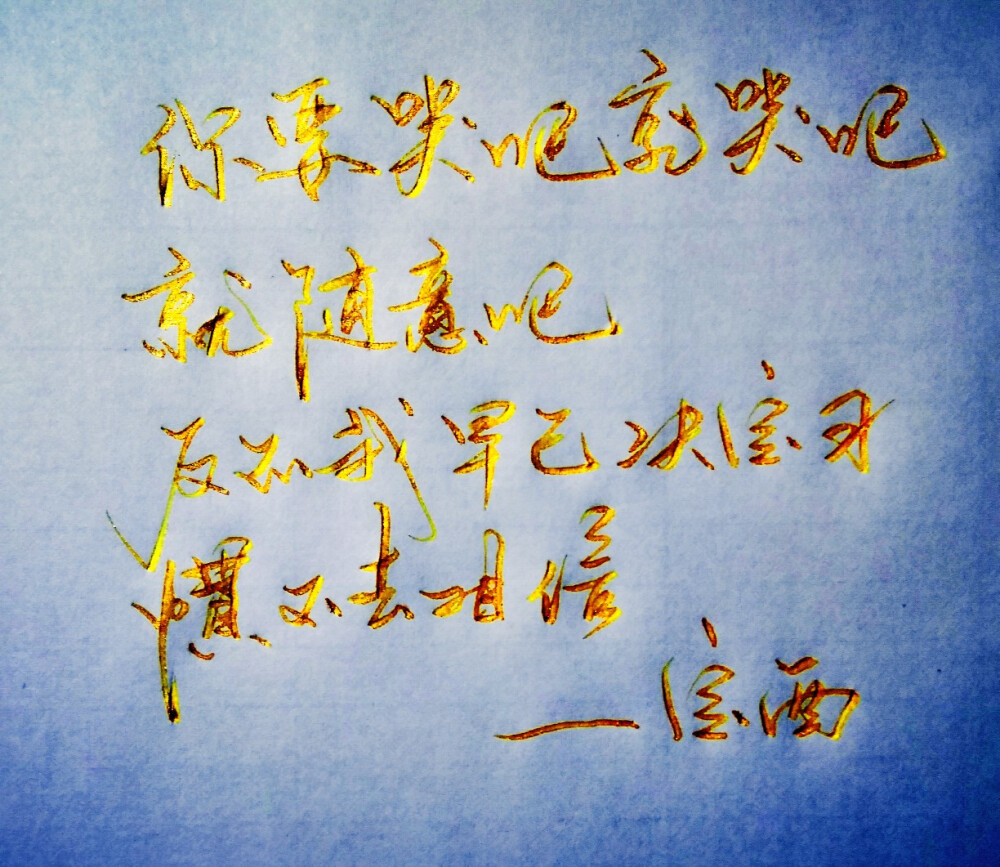 你要哭吧就哭吧
就随意吧
反正我早已决定习
慣不去相信
—定西